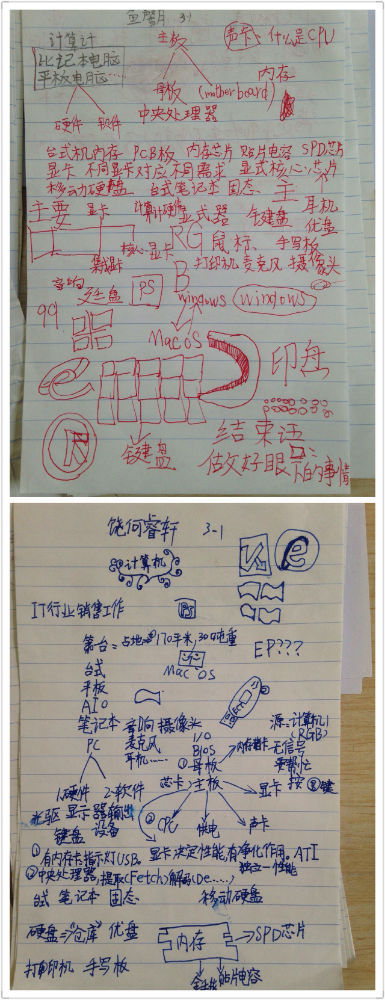 鱼馨月 3-1
计算计
主板
声卡:什么是CPU
比记本电脑
平板电脑……
母板 (motherboard)
内存
硬件 软件
中央处理器
台式机内存 PCB板 内存芯片 贴片电容 SPD芯片
显卡 不同显卡对应不同需求 显式核心:芯片
移动硬盘 台式笔记本 固态、主
主要 显卡
显式器 键盘 耳机
RG
B
鼠标、手写板 优盘
核心显卡
集成显卡
打印机 麦克风 摄像头
音响
PS
windows windows
99
MacOS
e
印盘
R
键盘
结束语
做好眼下的事情
饶何睿轩 3-1
计算机
e
IT行业销售工作
PS
EP???
第一台:占地170平米,30吨重
台式
MacOS
平板
AIO
笔记本
音响 摄像头
麦克风
耳机……
I/O
BIOS
①母板
源:计算机
(RGB)
内存 无信号
PC
1.硬件 2.软件
芯卡 主板
显卡 按 键
光驱 显示器输出
设备
键盘
②CPU 供电 声卡
①有内存卡指示灯USB。显卡决定性能,有净化作用。ATI
独立一性能
②中央处理器,提取(Fetch)解码(De……)
台式 笔记本 固态 移动硬盘
硬盘="仓库" 优盘
内存 →SPD芯片
打印机 手写板
贴片电容